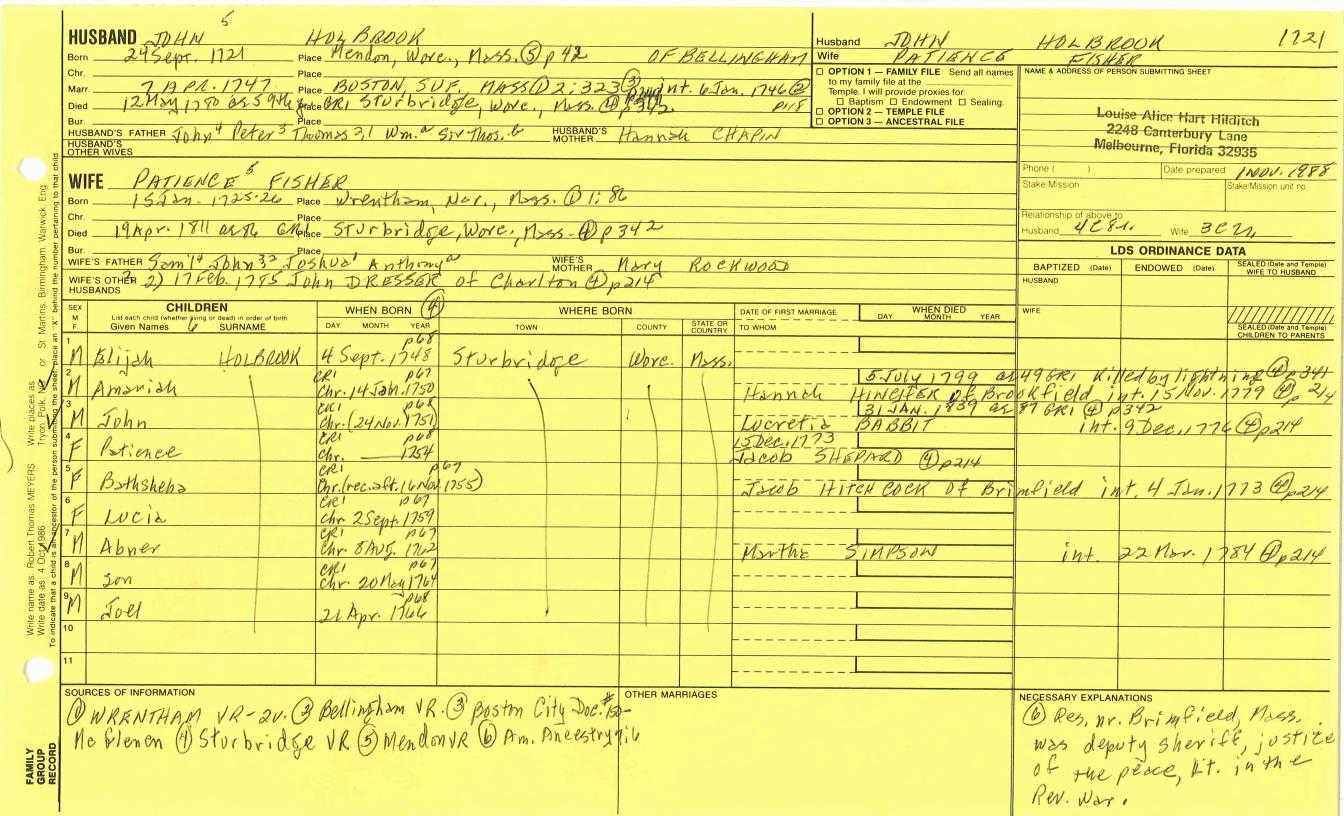 5
HUSBAND JOHN HOLBROOK
Born 24 Sept. 1721 Place Mendon, Worc, Mass. ⑤ p 42 OF BELLINGHAM
Chr. Place
Marr. 7 APR. 1747 Place BOSTON, SUF., MASS ① 2:323 ③ int. 6 Jan. 1746 ②
Died 12 May 1780 Place Sturbridge, Worc, Mass. ④ p118
Bur. Place
HUSBAND'S FATHER John⁴ Peter³ Thomas 2,1 Wm.ᵃ Sir Thos.ᵇ HUSBAND'S MOTHER Hannah CHAPIN
HUSBAND'S OTHER WIVES
Husband JOHN HOLBROOK 1721
Wife PATIENCE FISHER
☐ OPTION 1 — FAMILY FILE Send all names
to my family file at the
Temple. I will provide proxies for:
☐ Baptism ☐ Endowment ☐ Sealing.
☐ OPTION 2 — TEMPLE FILE
☐ OPTION 3 — ANCESTRAL FILE
NAME & ADDRESS OF PERSON SUBMITTING SHEET
Louise Alice Hart Hilditch
2248 Canterbury Lane
Melbourne, Florida 32935
Phone ( ) Date prepared 1 NOV. 1988
Stake/Mission Stake/Mission unit no.
Relationship of above to
Husband Wife
WIFE PATIENCE⁵ FISHER
Born 15 Jan. 1725-26 Place Wrentham, Nor., Mass. ① 1:86
Chr. Place
Died 19 Apr. 1811 Place Sturbridge, Worc., Mass. ④ p342
Bur. Place
WIFE'S FATHER Sam'l⁴ John³² Joshua¹ Anthonyᵃ WIFE'S MOTHER Mary ROCKWOOD
WIFE'S OTHER HUSBANDS 2) 17 Feb. 1785 John DRESSER of Charlton ④ p214
LDS ORDINANCE DATA
BAPTIZED (Date) ENDOWED (Date) SEALED (Date and Temple) WIFE TO HUSBAND
HUSBAND
WIFE
SEALED (Date and Temple) CHILDREN TO PARENTS
SEX M F CHILDREN WHEN BORN ④ WHERE BORN DATE OF FIRST MARRIAGE WHEN DIED
List each child (whether living or dead) in order of birth
Given Names 6 SURNAME DAY MONTH YEAR TOWN COUNTY STATE OR COUNTRY TO WHOM DAY MONTH YEAR
p68
1 M Elijah HOLBROOK 4 Sept. 1748 Sturbridge Worc. Mass.
CR1 p67 5 July 1799 ae 49 GR1 Killed by lightning ④ p341
2 M Amariah Chr. 14 Jan. 1750 Hannah HINCHER of Brookfield int. 15 Nov. 1779 ④ p 214
CR1 p68 31 JAN. 1839 ae 87 GR1 ④ p342
3 M John Chr. (24 Nov. 1751) Lucretia BABBIT int. 9 Dec. 1776 ④ p214
CR1 p68 15 Dec. 1773
4 F Patience Chr. 1754 Jacob SHEPARD ④ p214
CR1 p67
5 F Bathsheba Chr. (rec. aft. 16 Nov. 1755) Jacob HITCHCOCK Of Brimfield int. 4 Jan. 1773 ④ p214
CR1 p67
6 F Lucia Chr. 2 Sept. 1759
CR1 p67
7 M Abner Chr. 8 AUG. 1762 Martha SIMPSON int. 22 Mar. 1784 ④ p214
CR1 p67
8 M son Chr. 20 May 1764
p68
9 M Joel 21 Apr. 1766
10
11
SOURCES OF INFORMATION
① WRENTHAM VR-2v. ② Bellingham VR. ③ Boston City Doc. #150-
Mc Glenen ④ Sturbridge VR ⑤ Mendon VR ⑥ Am. Ancestry 7:6
OTHER MARRIAGES
NECESSARY EXPLANATIONS
⑥ Res. nr. Brimfield, Mass.
was deputy sheriff, justice
of the peace, Lt. in the
Rev. War.
FAMILY
GROUP
RECORD
Write name as: Robert Thomas MEYERS Write places as: Tryon, Polk, NC or St Martins, Birmingham, Warwick, Eng
Write date as: 4 Oct 1986
To indicate that a child is an ancestor of the person submitting the sheet, place an "X" behind the number pertaining to that child